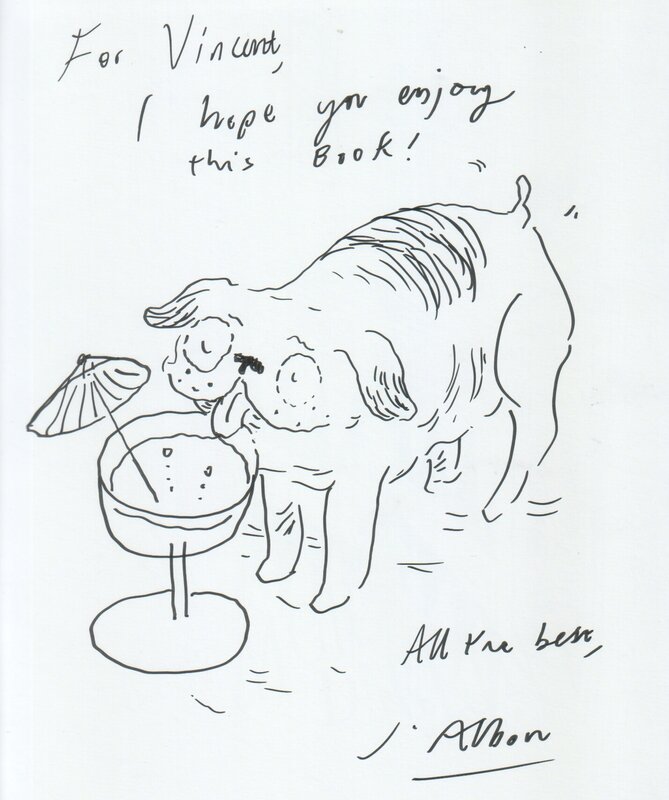 For Vincent,
I hope you enjoy
this Book!
All the best,
J. Albon